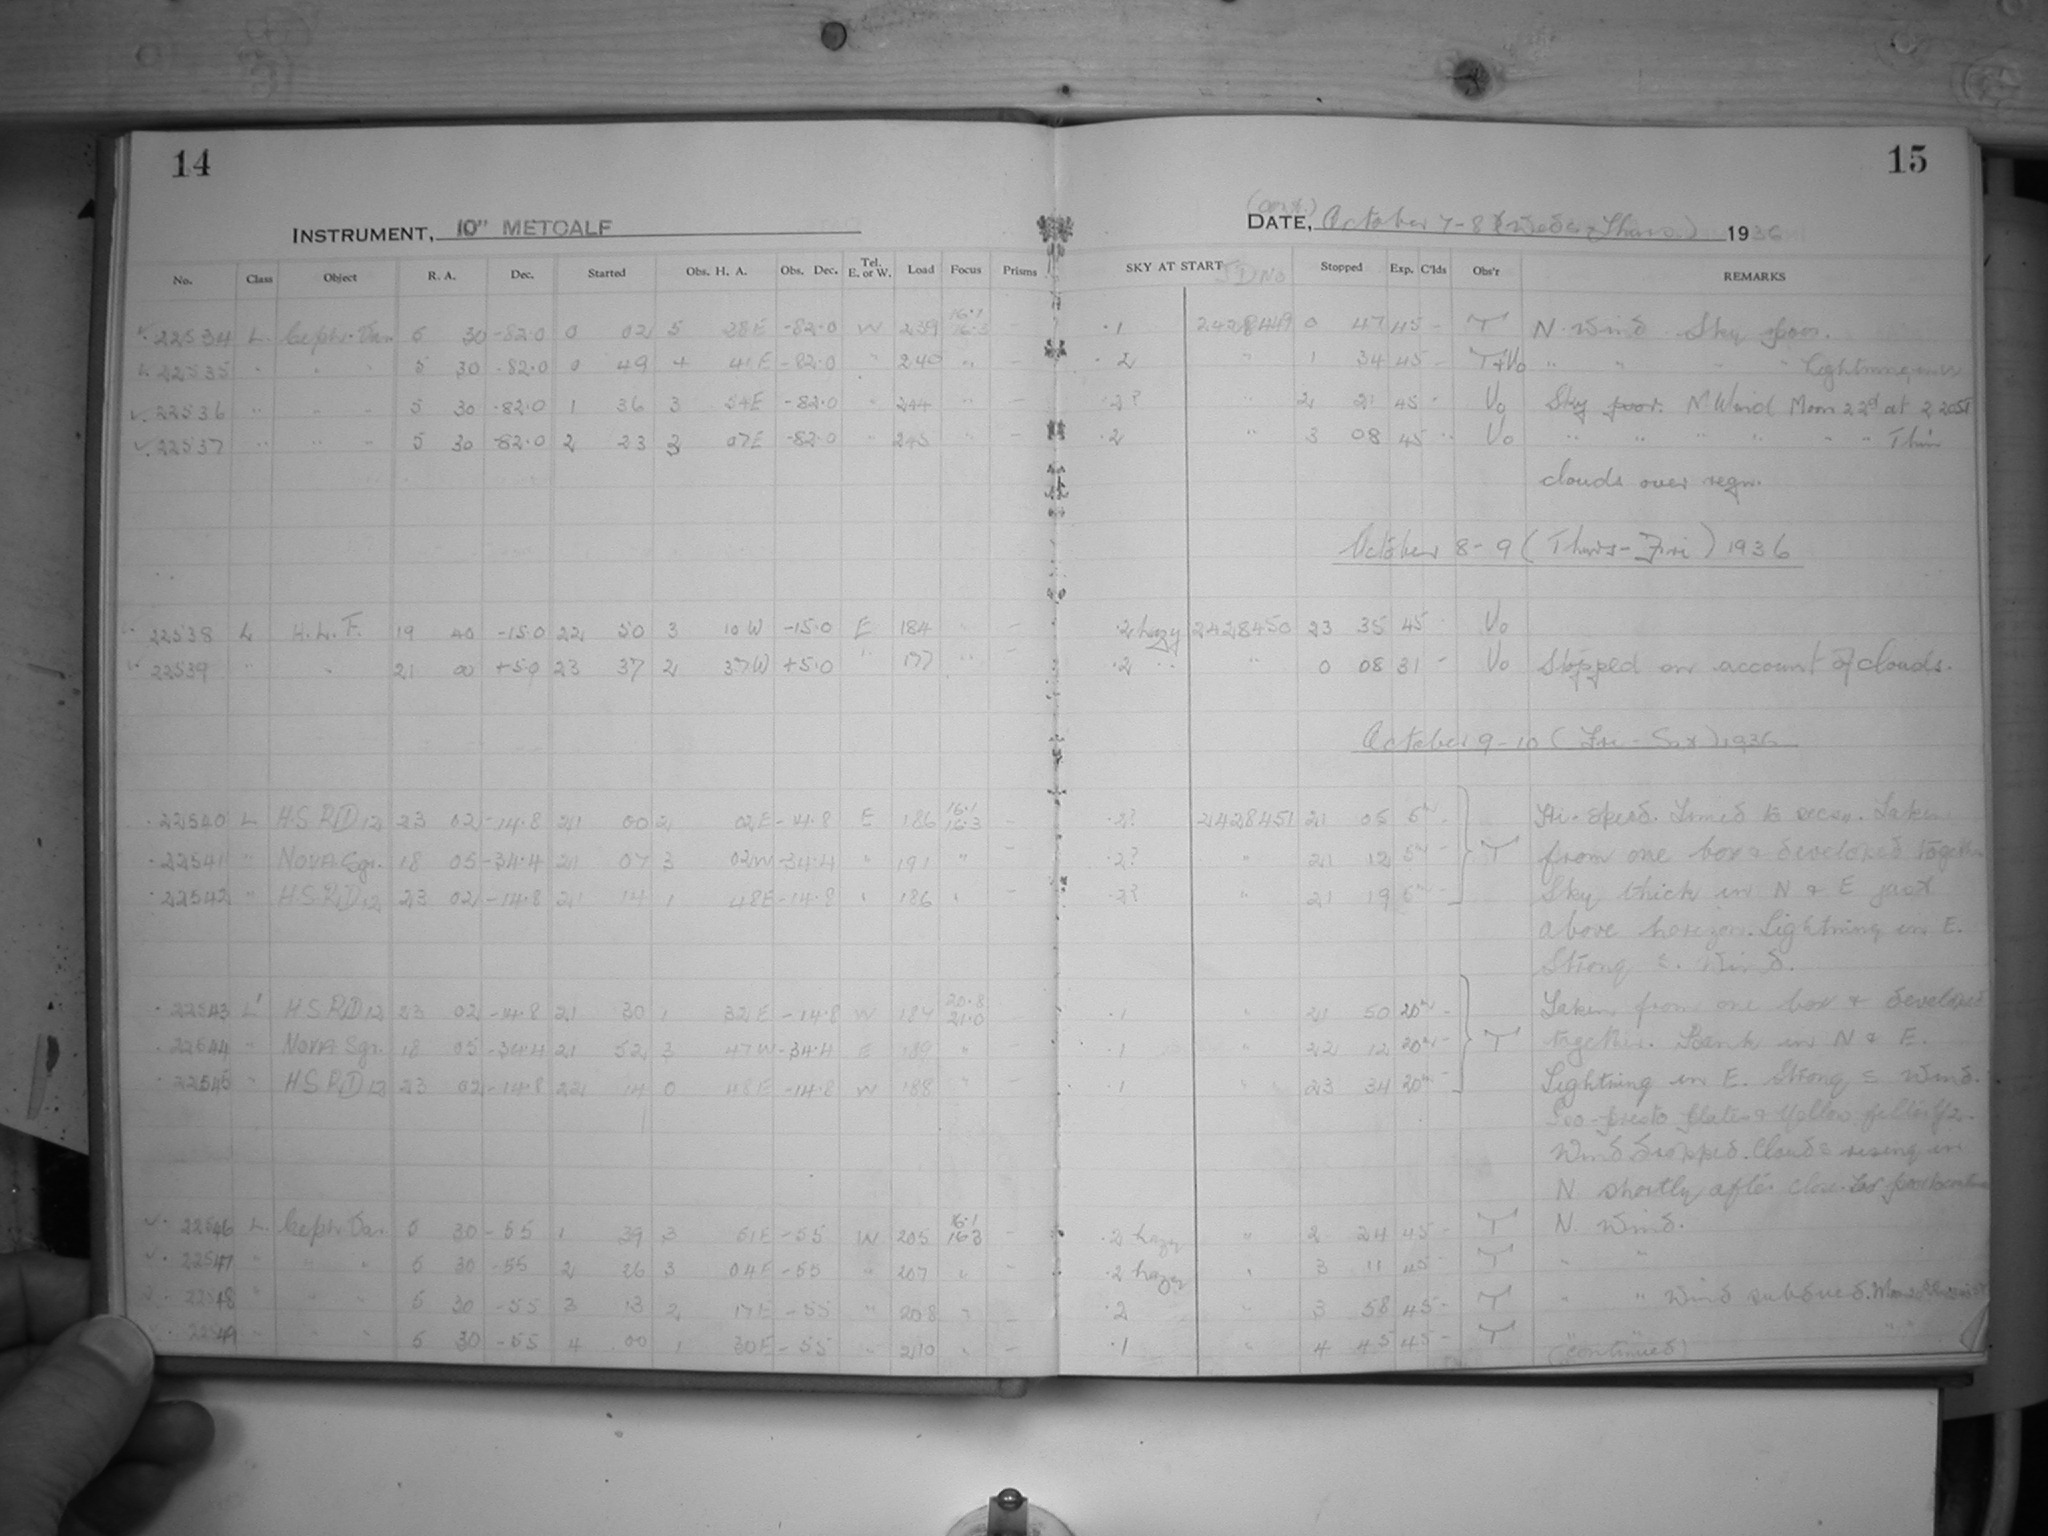 14
15
INSTRUMENT, 10" METCALF
(cont.)
DATE, October 7-8 (Weds-Thurs) 1936
No. Class Object R. A. Dec. Started Obs. H. A. Obs. Dec. Tel. E. or W. Load Focus Prisms SKY AT START JD No Stopped Exp. C'lds Obs'r REMARKS
22534 L Ceph. Var. 5 30 -82.0 0 02 5 28E -82.0 W 239 16.1 16.3 - .1 2428449 0 47 45 - T N. Wind. Sky poor.
22535 " " " 5 30 -82.0 0 49 4 41E -82.0 " 240 " - .2 " 1 34 45 - T+Vo " " " " Lightning
22536 " " " 5 30 -82.0 1 36 3 54E -82.0 " 244 " - .2? " 2 21 45 - Vo Sky poor. N Wind Moon 22d at 2 20ST
22537 " " " 5 30 -82.0 2 23 3 07E -82.0 " 245 " - .2 " 3 08 45 " Vo " " " " " " Thin
clouds over regn.
October 8-9 (Thurs-Fri) 1936
22538 L H.L.F. 19 40 -15.0 22 50 3 10W -15.0 E 184 " - .2 hazy 2428450 23 35 45 Vo
22539 " " 21 00 +5.0 23 37 2 37W +5.0 " 177 " - .2 " " 0 08 31 - Vo Stopped on account of clouds.
October 9-10 (Fri-Sat) 1936
22540 L HSPD12 23 02 -14.8 21 00 2 02E -14.8 E 186 16.1 16.3 - .2? 2428451 21 05 5m - Hi-speed. Taken
22541 " Nova Sgr. 18 05 -34.4 21 07 3 02W -34.4 " 191 " - .2? " 21 12 5m - T from one box & developed together
22542 " HSPD12 23 02 -14.8 21 14 1 48E -14.8 " 186 " - .2? " 21 19 5m - Sky thick in N & E just
above horizon. Lightning in E.
Strong E. Wind.
22543 L' HSPD12 23 02 -14.8 21 30 1 32E -14.8 W 187 20.8 21.0 - .1 " 21 50 20m - Taken from one box & developed
22544 " Nova Sgr. 18 05 -34.4 21 52 3 47W -34.4 E 189 " - .1 " 22 12 20m - T together. Bank in N & E.
22545 " HSPD12 23 02 -14.8 22 14 0 48E -14.8 W 188 " - .1 " 23 34 20m - Lightning in E. Strong E Wind.
Plates & Yellow filter
Wind dropped. Clouds rising in
N shortly after close.
22546 L Ceph. Var. 5 30 -55 1 39 3 51E -55 W 205 16.1 16.3 - .2 hazy " 2 24 45 - T N. Wind.
22547 " " " 5 30 -55 2 26 3 04E -55 " 207 " - .2 hazy " 3 11 45 - T " "
22548 " " " 5 30 -55 3 13 2 17E -55 " 208 " - .2 " 3 58 45 - T " " Wind subdued.
22549 " " " 5 30 -55 4 00 1 30E -55 " 210 " - .1 " 4 45 45 - T " "
(continued)